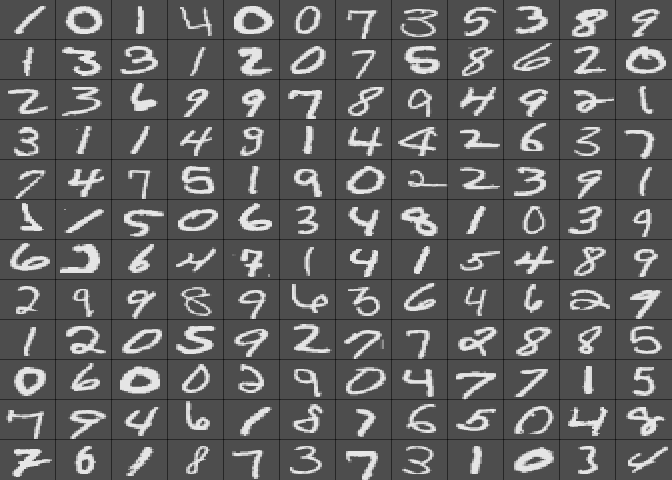 1 0 1 4 0 0 7 3 5 3 8 9
1 3 3 1 2 0 7 5 8 6 2 0
2 3 6 9 9 7 8 9 4 9 2 1
3 1 1 4 9 1 4 4 2 6 3 7
7 4 7 5 1 9 0 2 2 3 9 1
1 1 5 0 6 3 4 8 1 0 3 9
6 2 6 4 7 1 4 1 5 4 8 9
2 9 9 8 9 6 3 6 4 6 2 9
1 2 0 5 9 2 7 7 8 8 8 5
0 6 0 0 2 9 0 4 7 7 1 5
7 9 4 6 1 8 7 6 5 0 4 8
7 6 1 8 7 3 7 3 1 0 3 4